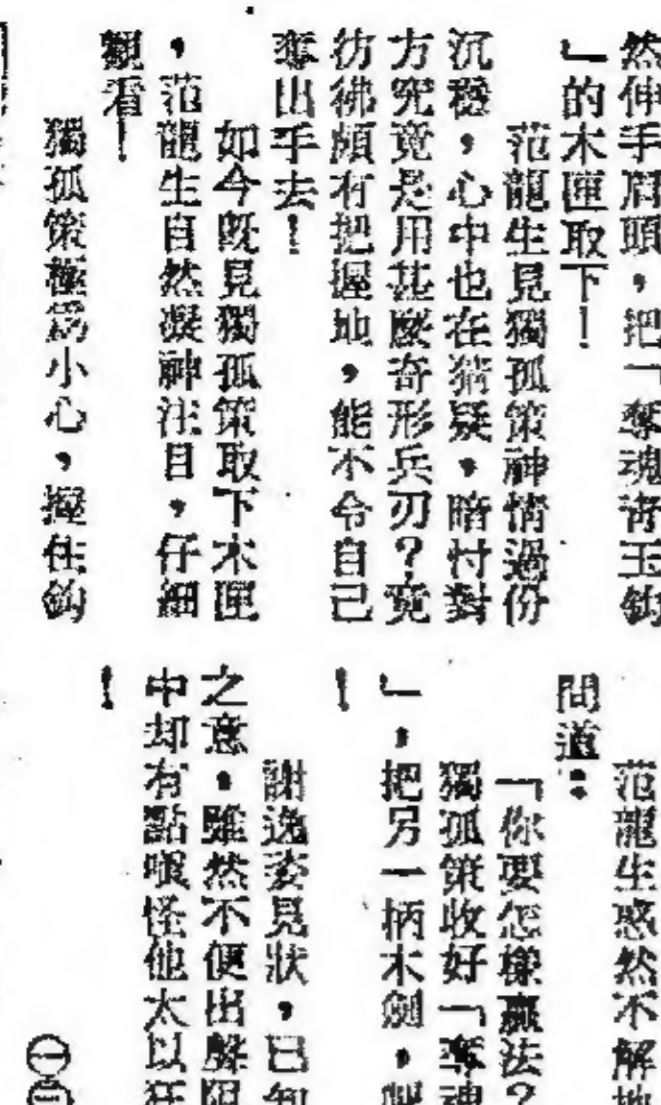 然伸手肩頭，把「奪魂青玉鈎
」的木匣取下！
范龍生見獨孤策神情過份
沉穩，心中也在猜疑，暗忖對
方究竟是用甚麼奇形兵刃？竟
彷彿頗有把握地，能不令自己
奪出手去！
如今既見獨孤策取下木匣
，范龍生自然凝神注目，仔細
觀看！
獨孤策極為小心，握住鈎
范龍生惑然不解地
問道：
「你要怎樣贏法？
獨孤策收好「奪魂
」，把另一柄木劍，
！
謝逸姿見狀，已知
之意，雖然不便出聲阻
中却有點嗔怪他太以狂
！
㊀